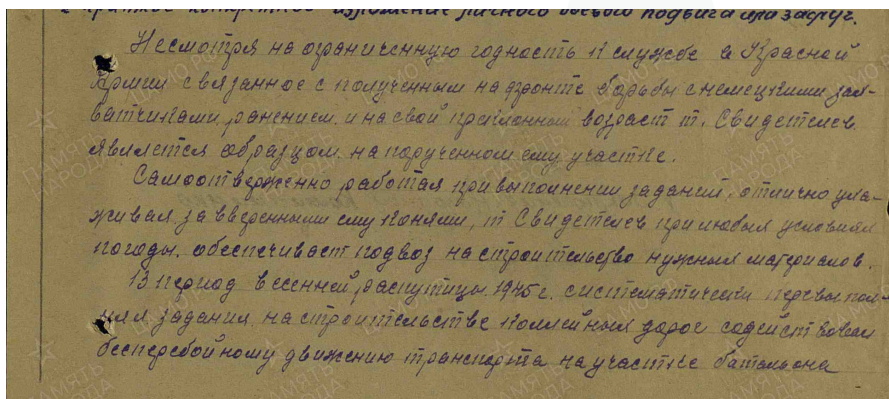 I краткое конкретное изложение личного боевого подвига или заслуг.
Несмотря на ограниченную годность к службе в Красной
Армии связанное с полученным на фронте борьбы с немецкими зах-
ватчиками, ранением, и на свой преклонный возраст т. Свидетелев
является образцом на порученном ему участке.
Самоотверженно работая при выполнении заданий, отлично уха-
живая за вверенными ему конями, т Свидетелев при любых условиях
погоды, обеспечивает подвоз на строительство нужных материалов.
В период весенней распутицы 1945 г. систематически перевыпол-
нял задания на строительстве коллейных дорог содействовал
бесперебойному движению транспорта на участке батальона
ПАМЯТЬ НАРОДА
ЦАМО РФ